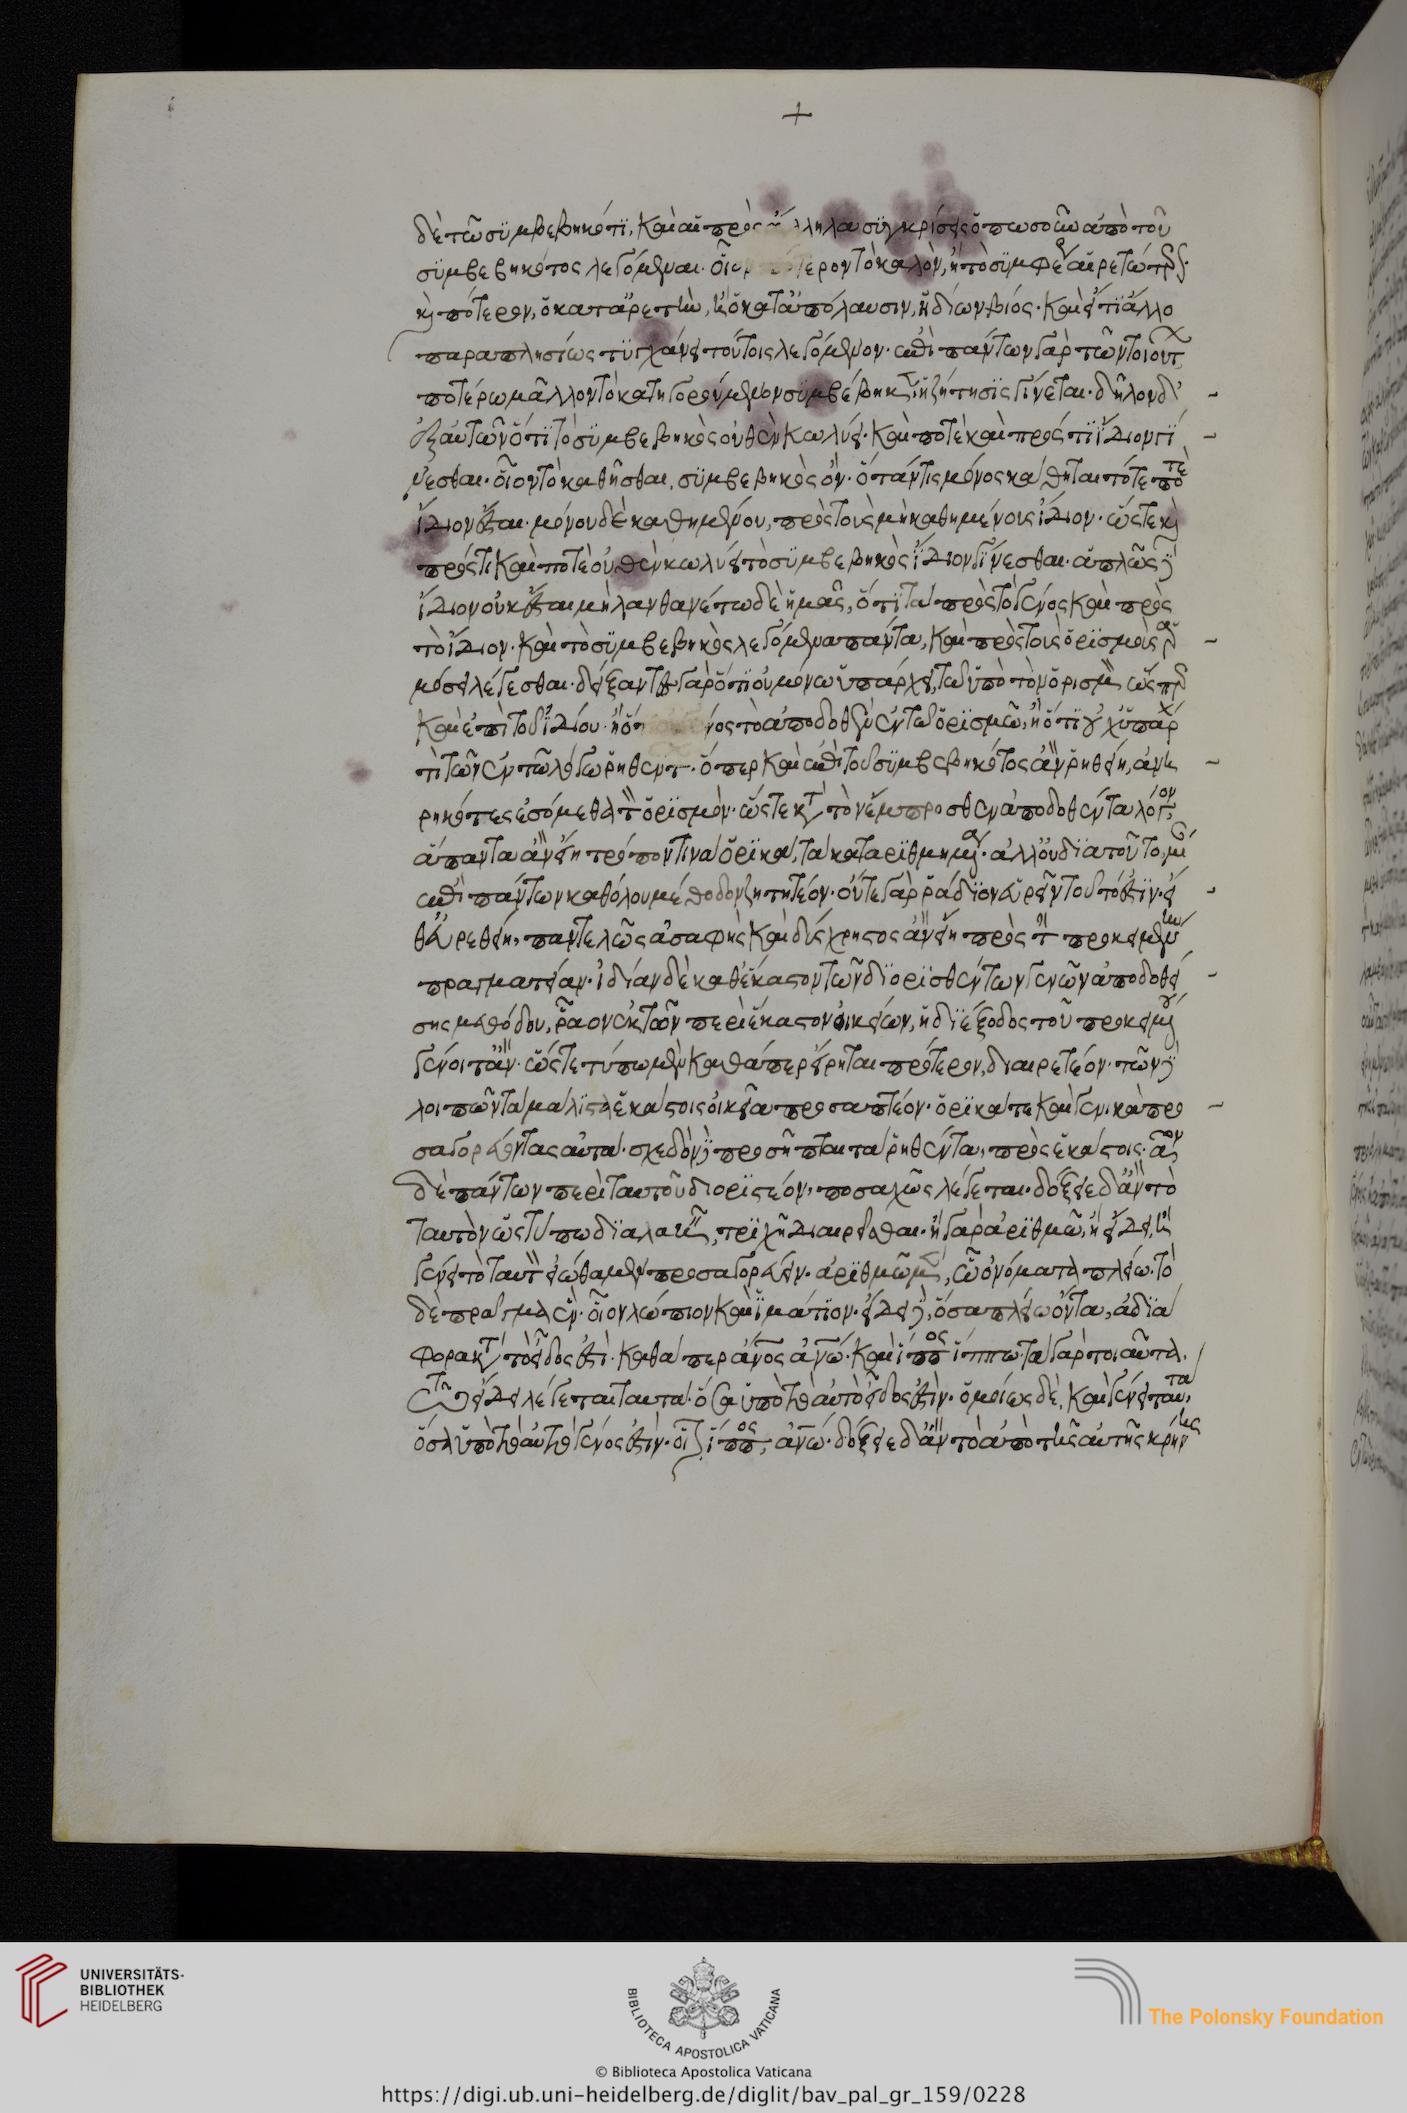 δὲ τῶ συμβεβηκότι. καὶ αἱ πρὸς ἄλληλα συγκρίσεις ὁπωσοῦν ἀπὸ τοῦ
συμβεβηκότος λεγόμεναι. οἷον πότερον τὸ καλὸν, ἢ τὸ συμφέρον αἱρετώτερον.
καὶ πότερον, ὁ κατ' ἀρετὴν, ἢ ὁ κατ' ἀπόλαυσιν, ἡδίων βίος. καὶ εἴ τι ἄλλο
παραπλησίως τυγχάνει τούτοις λεγόμενον. ἐπὶ πάντων γὰρ τῶν τοιούτων,
ποτέρω μᾶλλον τὸ κατηγορούμενον συμβέβηκεν, ἡ ζήτησις γίνεται. δῆλον δ'
ἐξ αὐτῶν ὅτι τὸ συμβεβηκὸς οὐθὲν κωλύει. καὶ ποτὲ καὶ πρός τι ἴδιον γί
νεσθαι. οἷον τὸ καθῆσθαι, συμβεβηκὸς ὄν. ὅταν τις μόνος κάθηται τότε ποτὲ
ἴδιον ἔσται. μόνου δὲ καθημένου, πρὸς τοὺς μὴ καθημένους ἴδιον. ὥστε καὶ
πρός τι καὶ ποτὲ οὐθὲν κωλύει τὸ συμβεβηκὸς ἴδιον γίνεσθαι. ἁπλῶς δὲ
ἴδιον οὐκ ἔσται μὴ λανθανέτω δὲ ἡμᾶς, ὅτι τὰ πρὸς τὸ γένος καὶ πρὸς
τὸ ἴδιον. καὶ τὸ συμβεβηκὸς λεγόμενα πάντα, καὶ πρὸς τοὺς ὁρισμοὺς ἁρ
μόσει λέγεσθαι. δείξαντες γὰρ ὅτι οὐ μόνω ὑπάρχει, τῶ ὑπὸ τὸν ὁρισμὸν ὥσπερ
καὶ ἐπὶ τοῦ ἰδίου. ἢ ὅτι νος τὸ ἀποδοθὲν ἐν τῶ ὁρισμῶ, ἢ ὅτι οὐχ ὑπάρχει
τὶ τῶν ἐν τῶ λόγω ῥηθέντων. ὅπερ καὶ ἐπὶ τοῦ συμβεβηκότος ἂν ῥηθείη, ἀνη
ρηκότες ἐσόμεθα τὸν ὁρισμόν. ὥστε κατὰ τὸν ἔμπροσθεν ἀποδοθέντα λόγον,
ἅπαντα ἂν εἴη τρόπον τινὰ ὁρικὰ, τὰ κατηριθμημένα. ἀλλ' οὐ διὰ τοῦτο, μίαν
ἐπὶ πάντων καθόλου μέθοδον ζητητέον. οὔτε γὰρ ῥάδιον εὑρεῖν τοῦτό ἐστιν. εἴ
θ' εὑρεθείη, παντελῶς ἀσαφὴς καὶ δύσχρηστος ἂν εἴη πρὸς τὴν προκειμένην
πραγματείαν. ἰδίαν δὲ καθ' ἕκαστον τῶν διορισθέντων γενῶν ἀποδοθεί
σης μεθόδου, ῥᾶον ἐκ τῶν περὶ ἕκαστον οἰκείων, ἡ διέξοδος τοῦ προκειμένου
γένοιτ' ἄν. ὥστε τύπω μὲν καθάπερ εἴρηται πρότερον, διαιρετέον. τῶν δὲ
λοιπῶν τὰ μάλιστα ἑκάστοις οἰκεῖα προσαπτέον. ὁρικά τε καὶ γενικὰ προ
σαγορεύοντας αὐτά. σχεδὸν δὲ προσῆπται τὰ ῥηθέντα, πρὸς ἑκάστοις. πρῶτον
δὲ πάντων περὶ ταυτοῦ διοριστέον, ποσαχῶς λέγεται. δόξειε δ' ἂν τὸ
ταυτὸν ὡς τύπω διαλαβεῖν, τριχῆ διαιρεῖσθαι. ἢ γὰρ ἀριθμῶ, ἢ εἴδει, ἢ
γένει τὸ ταυτὸν εἰώθαμεν προσαγορεύειν. ἀριθμῶ μὲν, ὧν ὀνόματα πλείω. τὸ
δὲ πρᾶγμα ἕν. οἷον λώπιον καὶ ἱμάτιον. εἴδει δὲ, ὅσα πλείω ὄντα, ἀδιά
φορα κατὰ τὸ εἶδος ἐστί. καθάπερ ἄνος ἀνω. καὶ ἵππος ἵππω. τὰ γὰρ τοιαῦτα,
τῶ εἴδει λέγεται ταυτά. ὅσα ὑπὸ τὸ αὐτὸ εἶδος ἐστίν. ὁμοίως δὲ, καὶ γένει ταυτὰ,
ὅσα ὑπὸ τὸ αὐτὸ γένος ἐστίν. οἷον ἵππος, ἀνω. δόξειε δ' ἂν τὸ ἀπὸ τῆς αὐτῆς κρήνης
UNIVERSITÄTS-
BIBLIOTHEK
HEIDELBERG
BIBLIOTECA APOSTOLICA VATICANA
© Biblioteca Apostolica Vaticana
The Polonsky Foundation
https://digi.ub.uni-heidelberg.de/diglit/bav_pal_gr_159/0228